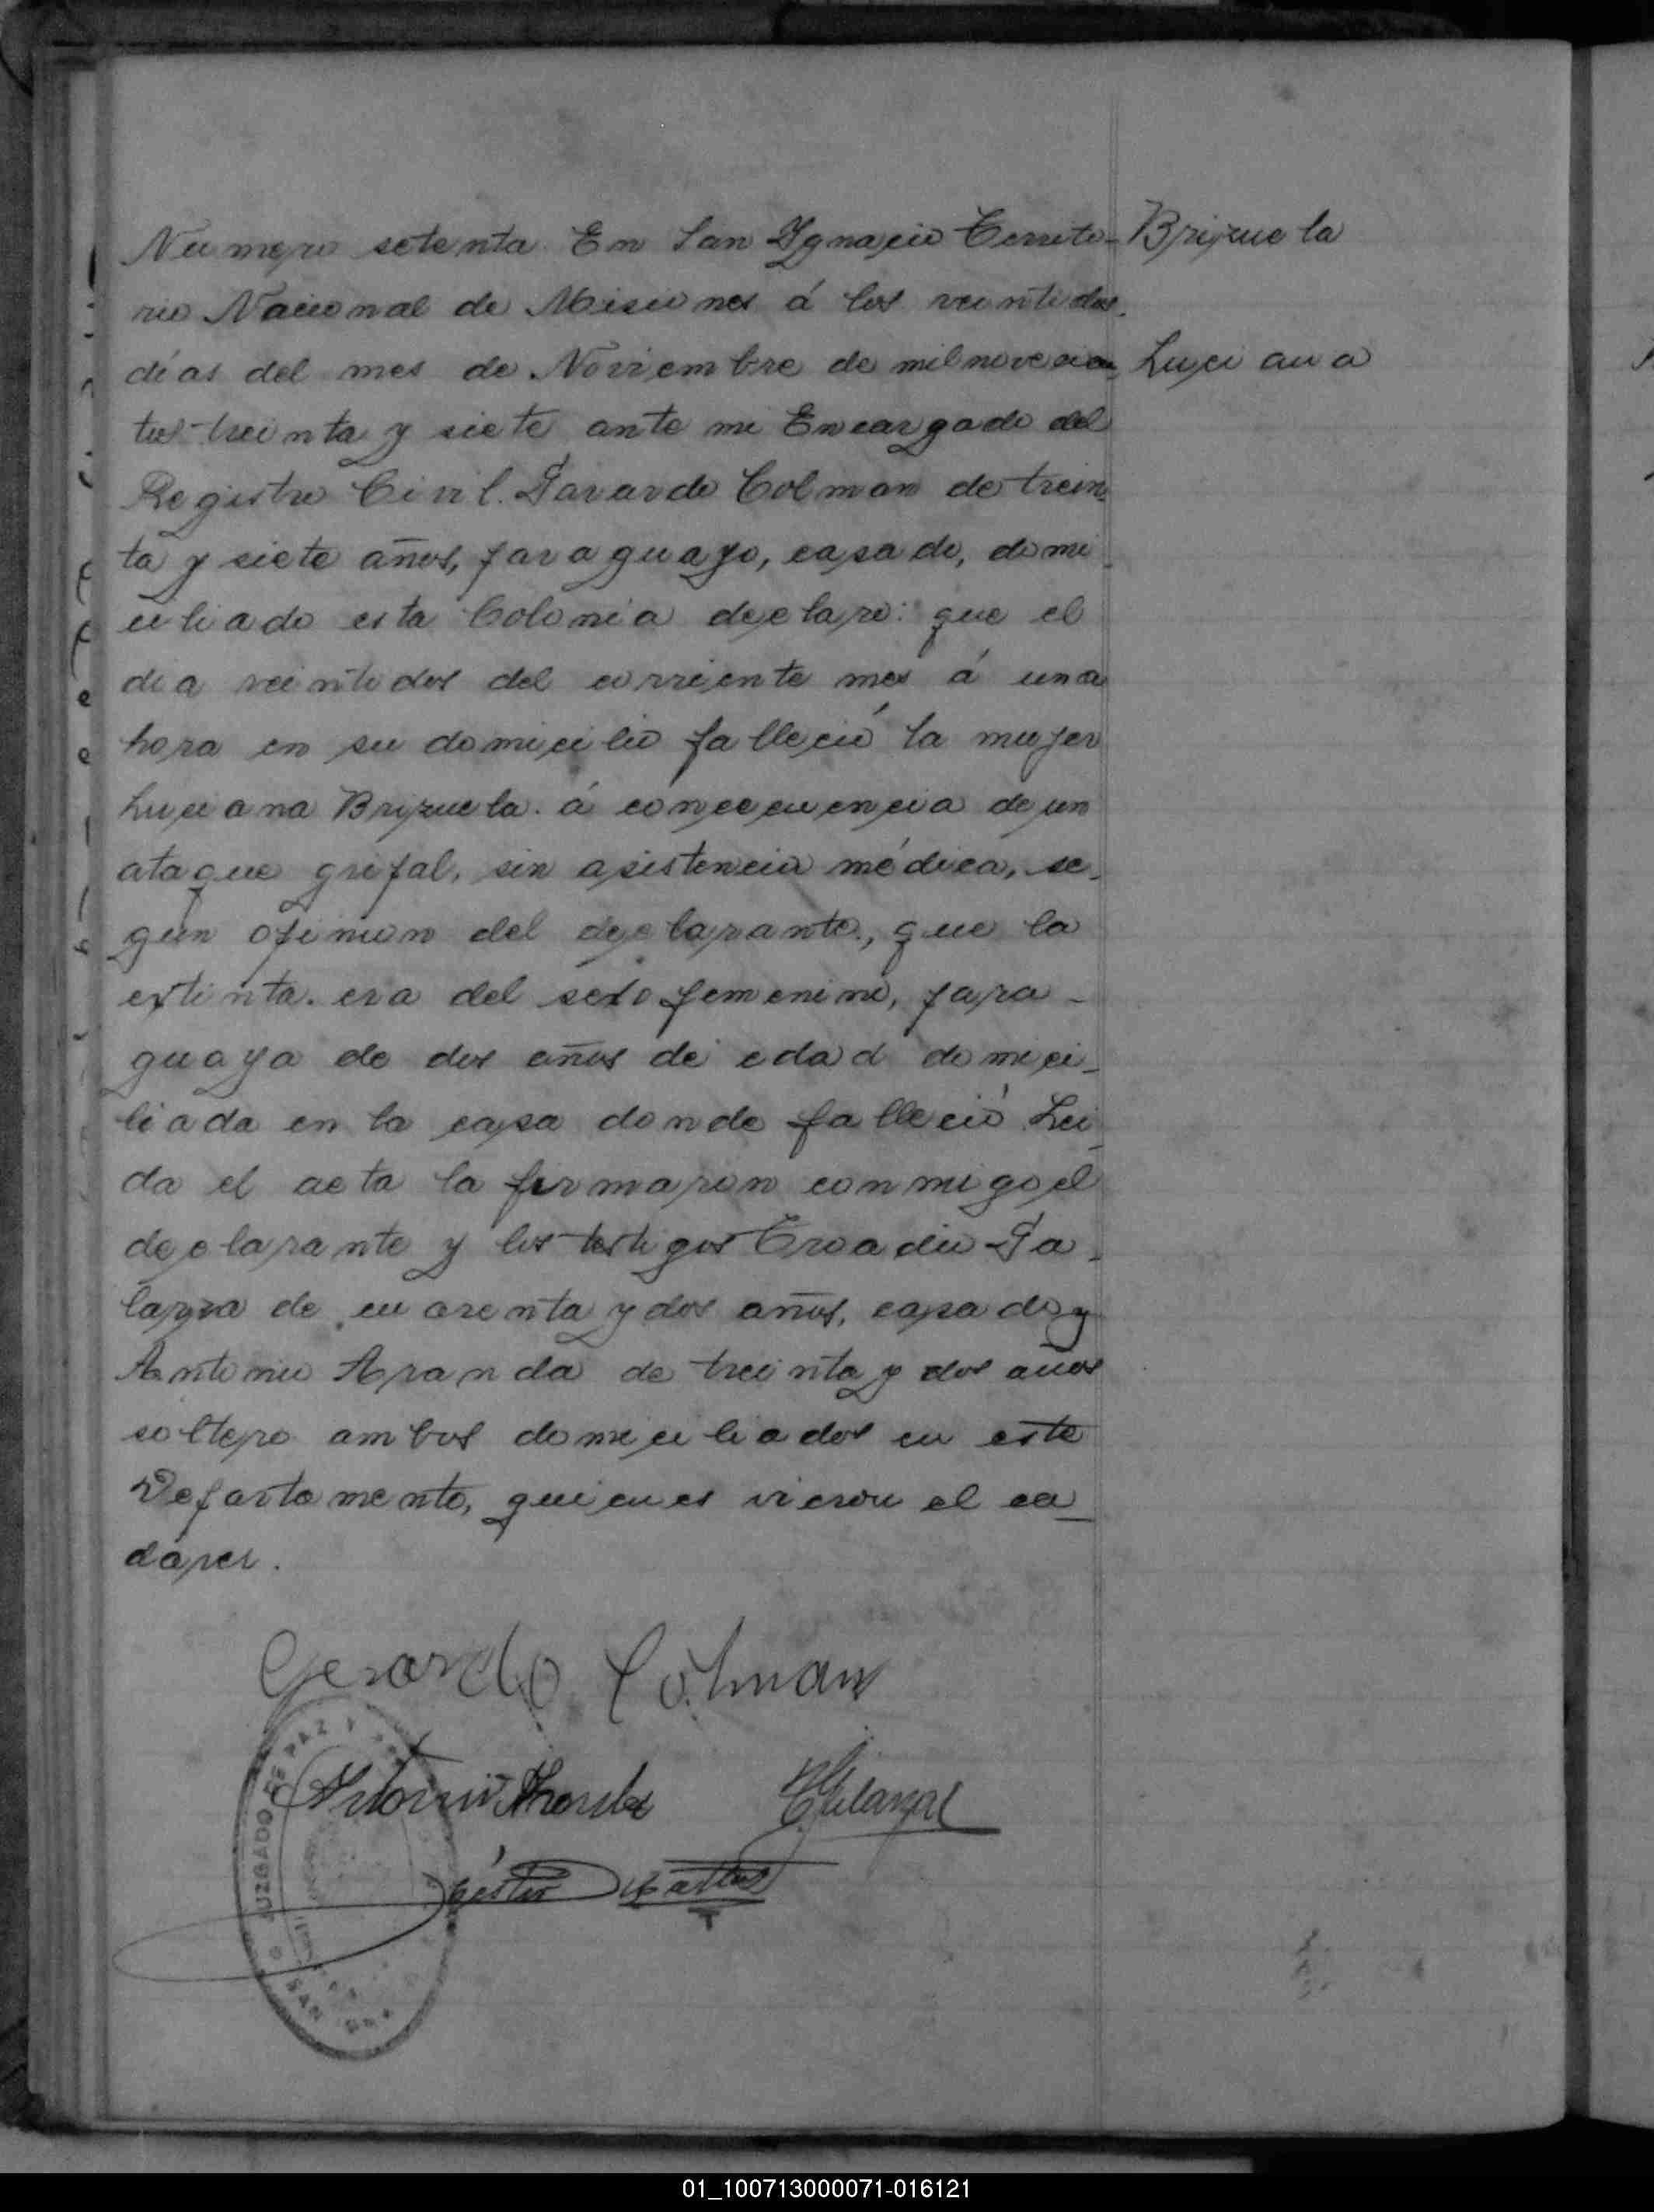 Numero setenta. En San Ygnacio Territo-
rio Nacional de Misiones á los veintidos
días del mes de Noviembre de mil novecien
tos treinta y siete ante mi Encargado del
Registro Civil. Garardo Colman de trein
ta y siete años, paraguayo, casado, domi
ciliado esta Colonia declaro: que el
dia veintidos del corriente mes á una
hora en su domicilio falleció la mujer
Luciana Brizuela. á consecuencia de un
ataque gripal, sin asistencia médica, se-
gun opinion del declarante, que la
extinta. era del sexo femenino, para-
guaya de dos años de edad domici-
liada en la casa donde falleció Lei
da el acta la firmaron conmigo el
declarante y los testigos Eroadio Ga-
larza de cuarenta y dos años, casado y
Antonio Aranda de treinta y dos años
soltero ambos domiciliados en este
Departamento, quienes vieron el ca
dáver.
Brizuela
Luciana
Gerardo Colman
Antonio Aranda
JUZGADO DE PAZ
SAN
01_100713000071-016121